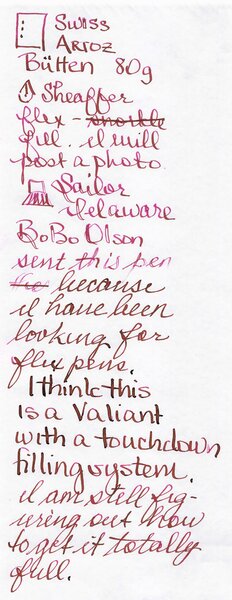 Swiss
Arroz
Bütten 80g
Sheaffer
flex - snorkle
fill. I will
post a photo
Sailor
Delaware
BoBo Olson
sent this pen
the because
I have been
looking for
flex pens.
I think this
is a Valiant
with a touchdown
filling system.
I am still fig-
uring out how
to get it totally
full.